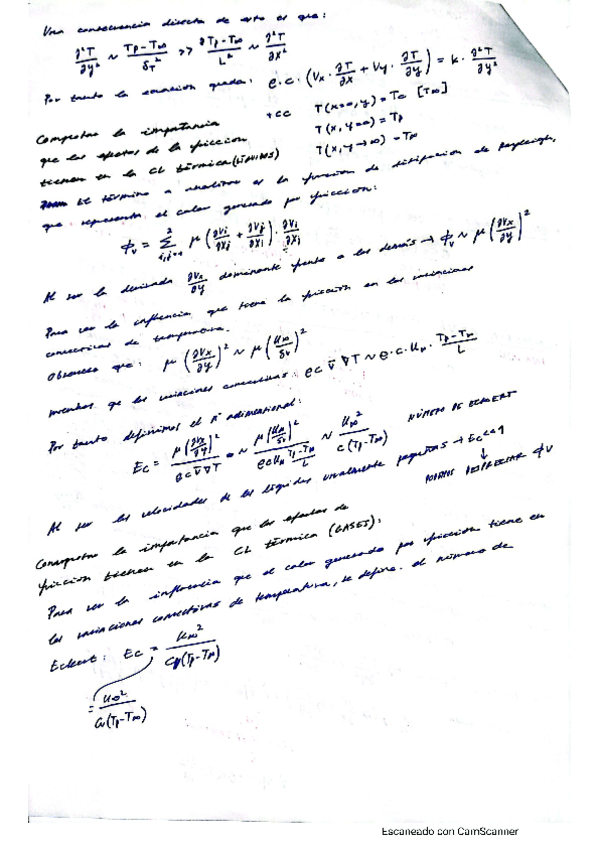 Una consecuencia directa de esto es que:
∂²T/∂y² ~ (Tp-T∞)/δT² >> (Tp-T∞)/L² ~ ∂²T/∂x²
Por tanto la ecuación queda: ρ·c·(Vx·∂T/∂x + Vy·∂T/∂y) = k·∂²T/∂y²
+CC T(x=0,y)=T∞ [T∞]
T(x,y=0)=Tp
T(x,y→∞)→T∞
Comprobar la importancia
que los efectos de la fricción
tienen en la CL térmica (LÍQUIDOS)
El término a analizar es la función de disipación de Rayleigh,
que representa el calor generado por fricción:
ϕv = Σ(i,j=1 → 2) μ(∂Vi/∂xj + ∂Vj/∂xi)·∂Vi/∂xj
Al ser la derivada ∂Vx/∂y dominante frente a las demás → ϕv ~ μ(∂Vx/∂y)²
Para ver la influencia que tiene la fricción en las variaciones
convectivas de temperatura.
Observo que: μ(∂Vx/∂y)² ~ μ(U∞/δv)²
mientras que las variaciones convectivas: ρc v̄ ∇T ~ ρ·c·U∞·(Tp-T∞)/L
Por tanto definimos el nº adimensional:
Ec = μ(∂Vx/∂y)²/(ρc v̄ ∇T) ~ μ(U∞/δv)²/(ρcU∞(Tp-T∞)/L) ~ U∞²/(c(Tp-T∞)) NÚMERO DE ECKERT
Al ser las velocidades de los líquidos usualmente pequeñas → Ec<<1
↓
PODEMOS DESPRECIAR ϕv
Comprobar la importancia que los efectos de
fricción tienen en la CL térmica (GASES):
Para ver la influencia que el calor generado por fricción tiene en
las variaciones convectivas de temperatura, se define el número de
Eckert: Ec = U∞²/(Cp(Tp-T∞))
= U∞²/(Cp(Tp-T∞))
Escaneado con CamScanner